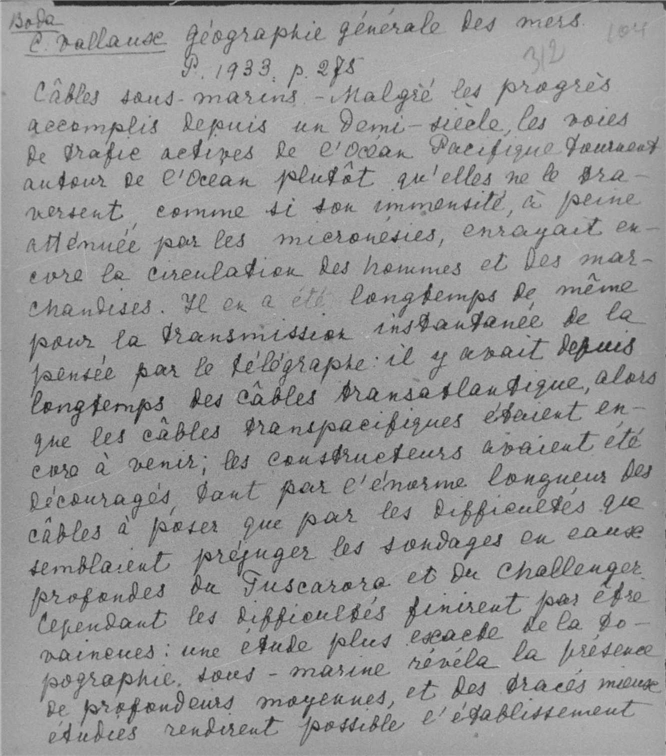 Вода
C. Vallaux Géographie générale des mers.
P. 1933. p. 275
312
104
Câbles sous-marins. - Malgré les progrès
accomplis depuis un demi-siècle, les voies
de trafic actives de l'Ocean Pacifique tournent
autour de l'Ocean plutôt qu'elles ne le tra-
versent, comme si son immensité, à peine
atténuée par les micronésies, enrayait en-
core la circulation des hommes et des mar-
chandises. Il en a été longtemps de même
pour la transmission instantanée de la
pensée par le télégraphe: il y avait depuis
longtemps des câbles transatlantique, alors
que les câbles transpacifiques étaient en-
core à venir; les constructeurs avaient été
découragés, tant par l'énorme longueur des
câbles à poser que par les difficultés que
semblaient préjuger les sondages en eaux
profondes du Tuscarora et du Challenger.
Cependant les difficultés finirent par être
vaincues: une étude plus exacte de la to-
pographie sous-marine révéla la présence
de profondeurs moyennes, et des tracés mieux
étudies rendirent possible l'établissement